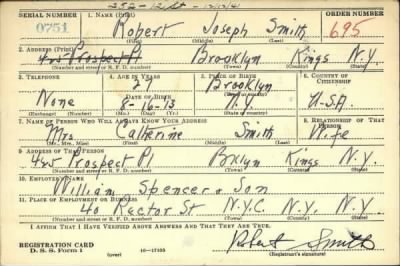 252-12
SERIAL NUMBER 1. NAME (Print) ORDER NUMBER
0751 Robert Joseph Smith 695
(First) (Middle) (Last)
2. ADDRESS (Print)
425 Prospect Pl Brooklyn Kings N.Y.
(Number and street or R. F. D. number) (Town) (County) (State)
3. TELEPHONE 4. AGE IN YEARS 5. PLACE OF BIRTH 6. COUNTRY OF CITIZENSHIP
27 Brooklyn
None DATE OF BIRTH (Town or county)
8-16-13 N.Y. U.S.A.
(Exchange) (Number) (Mo.) (Day) (Yr.) (State or country)
7. NAME OF PERSON WHO WILL ALWAYS KNOW YOUR ADDRESS 8. RELATIONSHIP OF THAT PERSON
Mrs Catherine Smith Wife
(Mr., Mrs., Miss) (First) (Middle) (Last)
9. ADDRESS OF THAT PERSON
425 Prospect Pl Bklyn Kings N.Y.
(Number and street or R. F. D. number) (Town) (County) (State)
10. EMPLOYER'S NAME
William Spencer & Son
11. PLACE OF EMPLOYMENT OR BUSINESS
40 Rector St N.Y.C. N.Y. N.Y.
(Number and street or R. F. D. number) (Town) (County) (State)
I AFFIRM THAT I HAVE VERIFIED ABOVE ANSWERS AND THAT THEY ARE TRUE.
REGISTRATION CARD
D. S. S. Form 1 (over) 16-17105 Robert Smith
(Registrant's signature)